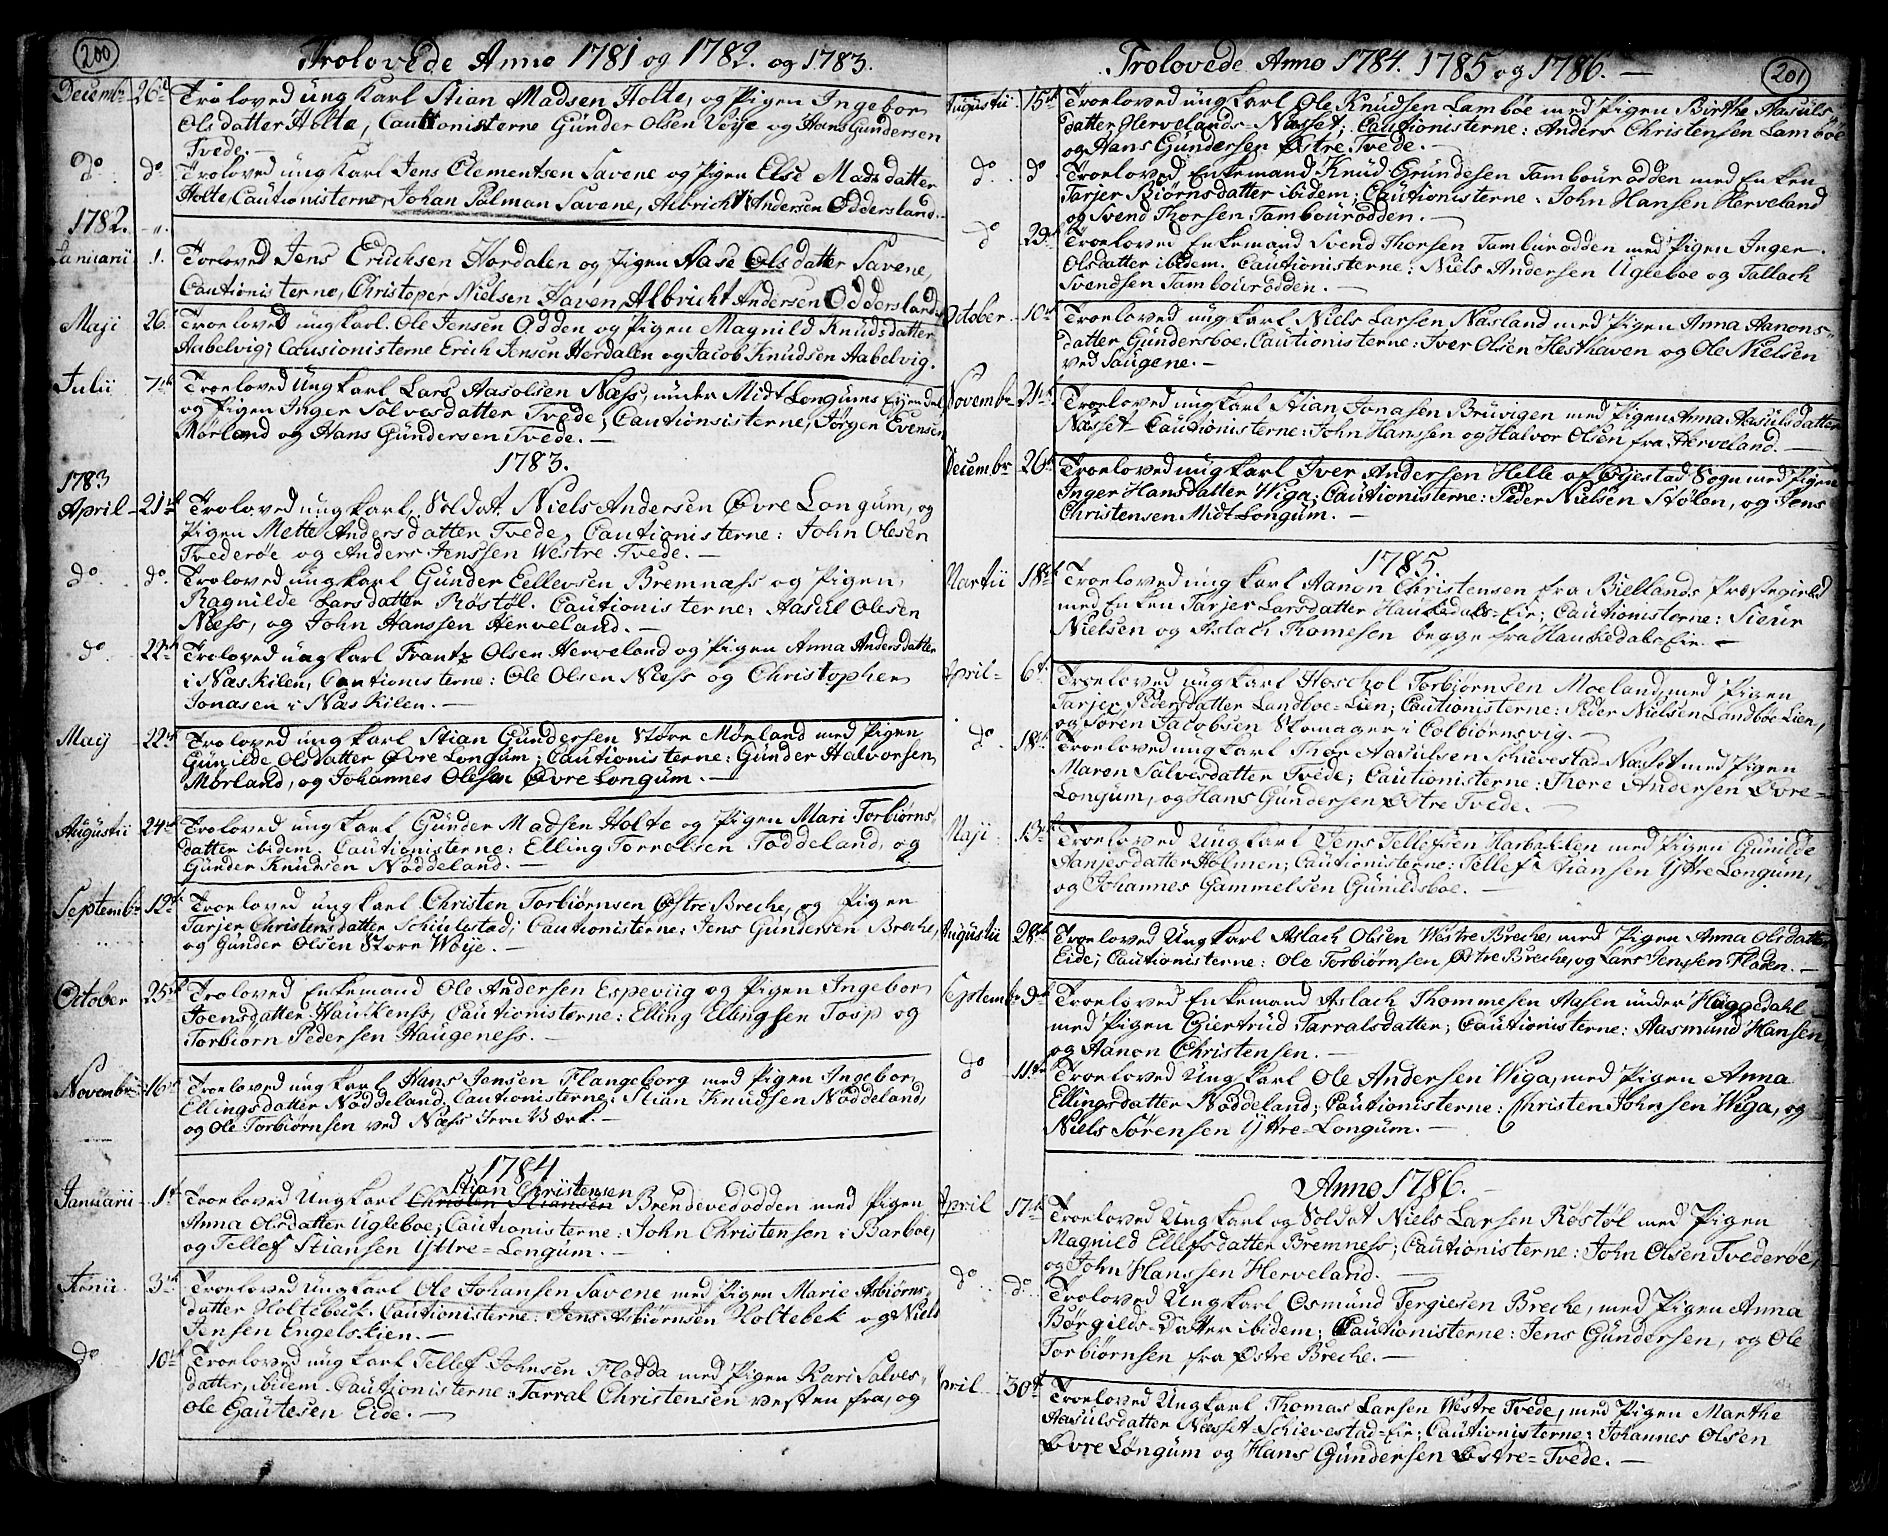 200
Trolovede Anno 1781 og 1782. og 1783.
Decembr 26d Troloved ung Karl Stian Madsen Holte, og Pigen Ingebor
Olsdatter Holte, Cautionisterne Günder Olsen Veye og Hans Gundersen
Tvede. —
do. do. Troloved ung Karl Jens Clementsen Savene og Pigen Else Madsdatter
Holte, Cautionisterne, Johan Palman Savene, Albricht Andersen Oddersland.
1782.
Januarii 1. Torloved Jens Erichsen Hordalen og Pigen Aase Olsdatter Savene,
Cautionisterne, Christoper Nielsen Haven, Albricht Andersen Oddersland
Maji 26. Troeloved ungkarl. Ole Jensen Odden og Pigen Magnild Knudsdatter
Aabelvig; Causionisterne Erich Jensen Hordalen og Jacob Knudsen Aabelvig.
Julii 7de Troeloved Ungkarl Lars Aasolsen Næss, under Midt Longums Eyendel
og Pigen Inger Solvesdatter Tvede, Cautionsisterne, Jørgen Evensen
Mørland og Hans Gündersen Tvede. —
1783.
1783
April 21de Troloved ungkarl, Soldat. Niels Andersen Øvre Longüm, og
Pigen Mette Andersdatter Tvede, Cautionisterne: John Olesen
Tvederøe og Anders Jenssen Westre Tvede. —
do. do. Troloved ungkarl Günder Eellevsen Bremnæss og Pigen,
Ragnilde Larsdatter Røstøl. Cautionisterne: Aasül Olesen
Næss, og John Hanssen Herveland. —
do. 22de Troloved ungkarl Frantz Olsen Herveland og Pigen Anna Andersdatter
i Næskilen, Cautionisterne: Ole Olsen Næss og Christopher
Jonasen i Næskilen. —
Maij 22de Troloved ungkarl Stian Gündersen Støre Mørland med Pigen
Gunilde Olsdatter Øvre Longüm; Cautionisterne: Günder Halvorsen
Mørland, og Johannes Olesen Øvre Longüm. —
Augustii 24de Troloved ungkarl Günder Madsen Holte og Pigen Mari Torbiørns
datter ibidem. Cautionisterne: Elling Torrelsen Toddeland, og
Günder Knüdsen Nøddeland. —
Septembr 12te Troeloved ungkarl Christen Torbiørnsen Østre Breche, og Pigen
Tarjer Christensdatter Schiulestad; Cautionisterne: Jens Gündersen Breche,
og Günder Olsen Store Woije. —
October 25de Troloved Enkemand Ole Andersen Espeviig og Pigen Ingebor
Joensdatter Hauckenss, Cautionisterne: Elling Ellingsen Tosp og
Torbiørn Pedersen Haugeness. —
Novembr 16de Troeloved ungkarl Hans Jensen Flangeborg med Pigen Ingebor
Ellingsdatter Nøddeland; Cautionisterne: Stian Knudsen Nøddeland,
og Ole Torbiørnsen ved Næss Jern Værk. —
1784
Stian Christensen
Januarii 1te Troeloved Ungkarl Christen Stiansen Brendevedodden med Pigen
Anna Olsdatter Ugleboe; Cautionisterne: John Christensen i Barboe,
og Tellef Stiansen Ijttre-Longüm. —
Junii 3de Troeloved ungkarl Ole Johansen Savene med Pigen Marie Asbiørns
datter Holtebech. Cautionisterne: Jens Asbiørnsen Holtebek og Niels
Jensen Engelskien. —
do 10de Troeloved ungkarl Tellef Johnsen Flodda med Pigen Kari Salves
datter, ibidem. Cautionisterne: Tarral Christensen vesten fra, og
Ole Gautesen Eide. —
201
Trolovede Anno 1784. 1785 og 1786. —
Augustii 15de Troeloved ungkarl Ole Knudsen Lamboe med Pigen Birthe Aasüls
datter Hervelands-Næsset; Cautionisterne: Anders Christensen Lamboe
og Hans Gündersen Østre Tvede. —
do. do Troeloved Enkemand Knud Grundesen Tambourodden med Enken
Tarjer Biørnsdatter ibidem; Cautionisterne: John Hansen Herveland
og Svend Thorsen Tambourodden. —
do 29de Troeloved Enkemand Svend Thorsen Tamburodden med Pigen Inger
Olsdatter ibidem. Cautionisterne: Niels Andersen Ugleboe og Tallach
Svendsen Tambourodden. —
October 10de Troeloved ungkarl Niels Larsen Næsland med Pigen Anna Aanons
datter Gündersboe. Cautionisterne: Iver Olsen Hesthaven og Ole Nielsen
ved Saugene. —
Novembr 21de Troeloved ungkarl Stian Jonasen Brüvigen med Pigen Anna Aasülsdatter
Næsset Cautionisterne: John Hanssen og Halvor Olsen fra Herveland.
Decembr 26de Troeloved ungkarl Iver Andersen Helle af Øyestad Sogn med Pigen
Inger Hansdatter Wiga; Cautionisterne: Peder Nielsen Stølen, og Jens
Christensen Midt-Longüm. —
1785
Martii 18de Troeloved ungkarl Aanon Christensen fra Biellands Præstegield
med Enken Tarjer Larsdatter Hauhedals-Eie; Cautionisterne: Sieur
Nielsen og Aslach Thomesen begge fra Haukedals Eie. —
April 6te Troeloved ungkarl Hoschol Torbiørnsen Moeland, med Pigen
Tarjer Pedersdatter Landboe-Lien; Cautionisterne: Peder Nielsen Landboe-Lien,
og Søren Jacobsen Skomager i Colbiørnsvig. —
do. 18de Troeloved ungkarl Thor Aasulsen Schievestad-Næset med Pigen
Maren Salvesdatter Tvede; Cautionisterne: Thore Andersen Øvre-
Longüm, og Hans Gundersen Østre Tvede. —
Maji 13de Troeloved Ungkarl Jens Tellefsen Harbakklen med Pigen Günilde
Tarjesdatter Holmen; Cautionisterne: Tellef Stiansen Ijttre Longüm,
og Johannes Gammelsen Gunildsboe. —
Augustii 28de Troeloved Ungkarl Aslach Olsen Westre Breche, med Pigen Anna Olsdatter
Eide; Cautionisterne: Ole Torbiørnsen Østre Breche, og Lars Jenssen Floden. —
Septembr 9de Troeloved Enkemand Aslach Thommesen Aasen under Huggedahl
med Pigen Giertrud Tarralsdatter; Cautionisterne: Aasmund Hansen
og Aanon Christensen. —
do 11te Troeloved Ungkarl Ole Andersen Wiga, med Pigen Anna
Ellingsdatter Noddeland; Cautionisterne: Christen Johnsen Wiga, og
Niels Sørensen Ijttre-Longüm. —
Anno 1786. —
April 17de Troeloved Ungkarl og Soldat Niels Larsen Røstøl med Pigen
Magnild Ellefsdatter Bremness; Cautionisterne: John Olsen Tvederøe,
og John Hanssen Herveland. —
do. do. Troloved Ungkarl Osmünd Tergiesen Breche, med Pigen Anna
Børgilds-Datter ibidem; Cautionisterne: Jens Gündersen, og Ole
Torbiørnsen fra Østre Breche. —
pril 30te Troeloved Ungkarl Thomas Larsen Westre Tvede, med Pigen Marthe
Aasülsdatter Næsset-Schievestad-Eie; Cautionisterne: Johannes Olsen
Øvre Longüm og Hans Gündersen Østre-Tvede. —